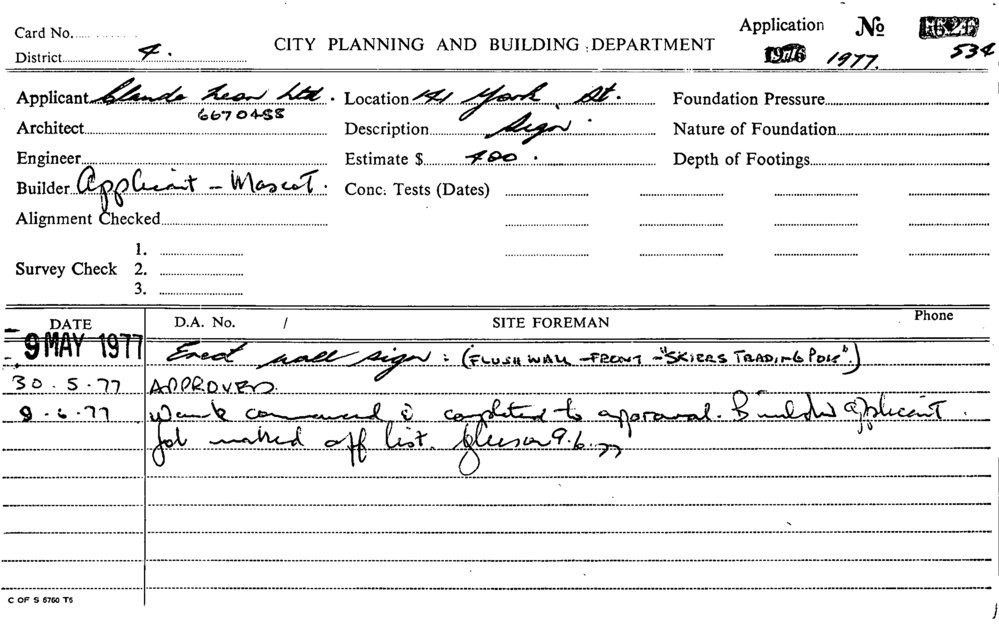 Card No.
Application No
District 4. CITY PLANNING AND BUILDING DEPARTMENT 1976 1977. 534
Applicant Claude Neon Ltd. Location 141 York St. Foundation Pressure
6670488
Architect Description Sign. Nature of Foundation
Engineer Estimate $ 400. Depth of Footings
Builder Applicant - Mascot. Conc. Tests (Dates)
Alignment Checked
1.
Survey Check 2.
3.
DATE D.A. No. / SITE FOREMAN Phone
- 9 MAY 1977 Erect wall sign: (FLUSH WALL - FRONT - "SKIERS TRADING POST".)
30.5.77 APPROVED.
9.6.77 Work commenced & completed to approval. Builder applicant.
Job marked off list. 9.6.77
C OF S 5760 T5